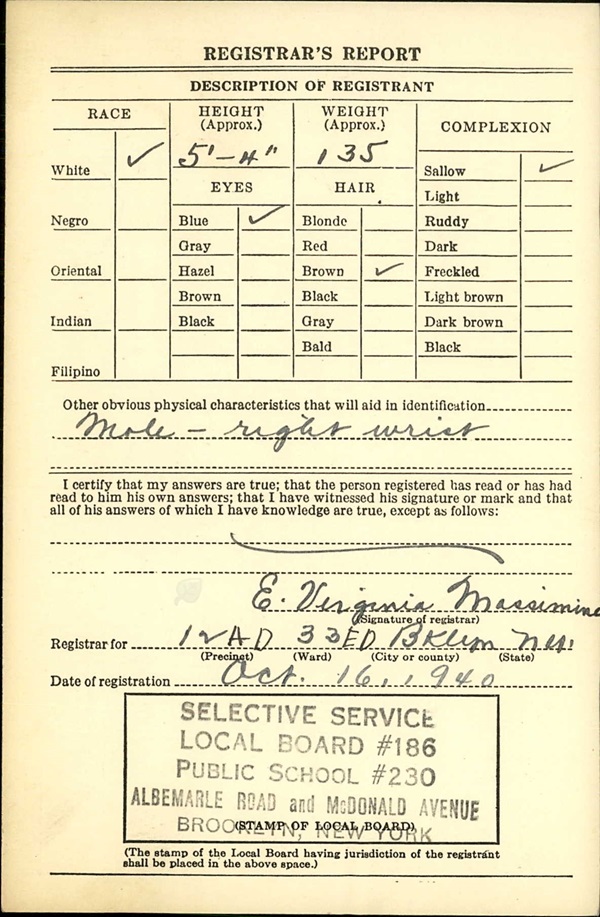 REGISTRAR'S REPORT
DESCRIPTION OF REGISTRANT
RACE
HEIGHT (Approx.)
WEIGHT (Approx.)
COMPLEXION
5'-4"
135
White ✓
EYES
HAIR
Sallow ✓
Light
Negro
Blue ✓
Blonde
Ruddy
Gray
Red
Dark
Oriental
Hazel
Brown ✓
Freckled
Brown
Black
Light brown
Indian
Black
Gray
Dark brown
Bald
Black
Filipino
Other obvious physical characteristics that will aid in identification
Mole - right wrist
I certify that my answers are true; that the person registered has read or has had
read to him his own answers; that I have witnessed his signature or mark and that
all of his answers of which I have knowledge are true, except as follows:
E. Virginia Massimine
(Signature of registrar)
Registrar for 12 AD 33 ED Bklyn
(Precinct) (Ward) (City or county) (State)
Date of registration Oct. 16, 1940
SELECTIVE SERVICE
LOCAL BOARD #186
PUBLIC SCHOOL #230
ALBEMARLE ROAD and McDONALD AVENUE
BROOKLYN, NEW YORK
(STAMP OF LOCAL BOARD)
(The stamp of the Local Board having jurisdiction of the registrant
shall be placed in the above space.)